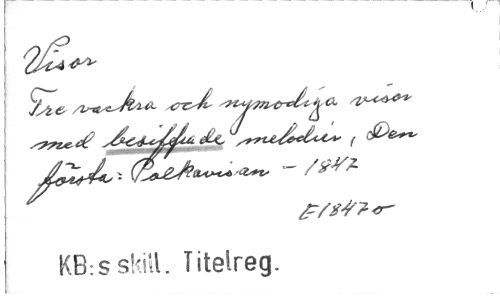 Visor
Tre vackra och nymodiga visor
med besiffrade melodier, Den
första: Polkavisan - 1847
E1847o
KB:s skill. Titelreg.